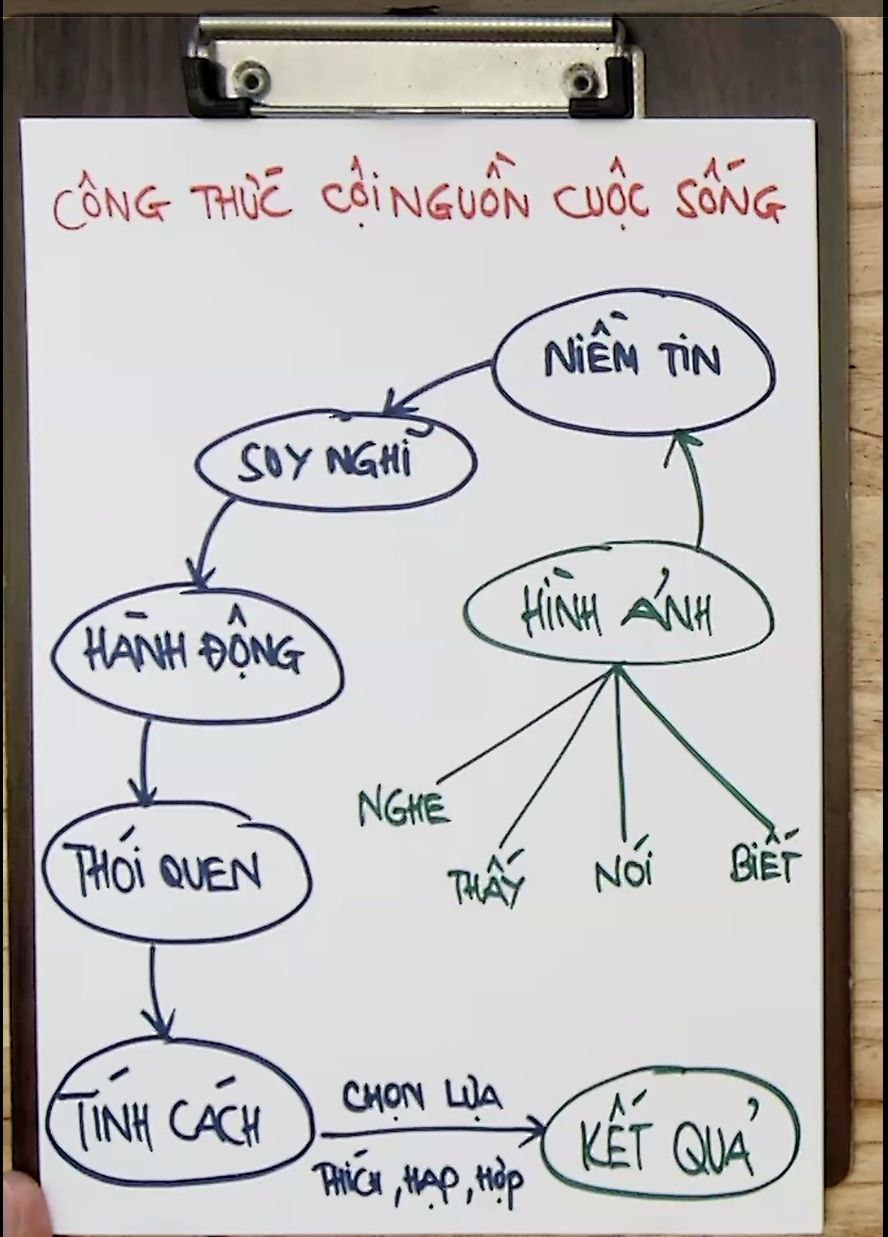 CÔNG THỨC CỘI NGUỒN CUỘC SỐNG
NIỀM TIN
SUY NGHĨ
HÌNH ẢNH
HÀNH ĐỘNG
NGHE
THẤY
NÓI
BIẾT
THÓI QUEN
TÍNH CÁCH
CHỌN LỰA
THÍCH, HẠP, HỢP
KẾT QUẢ